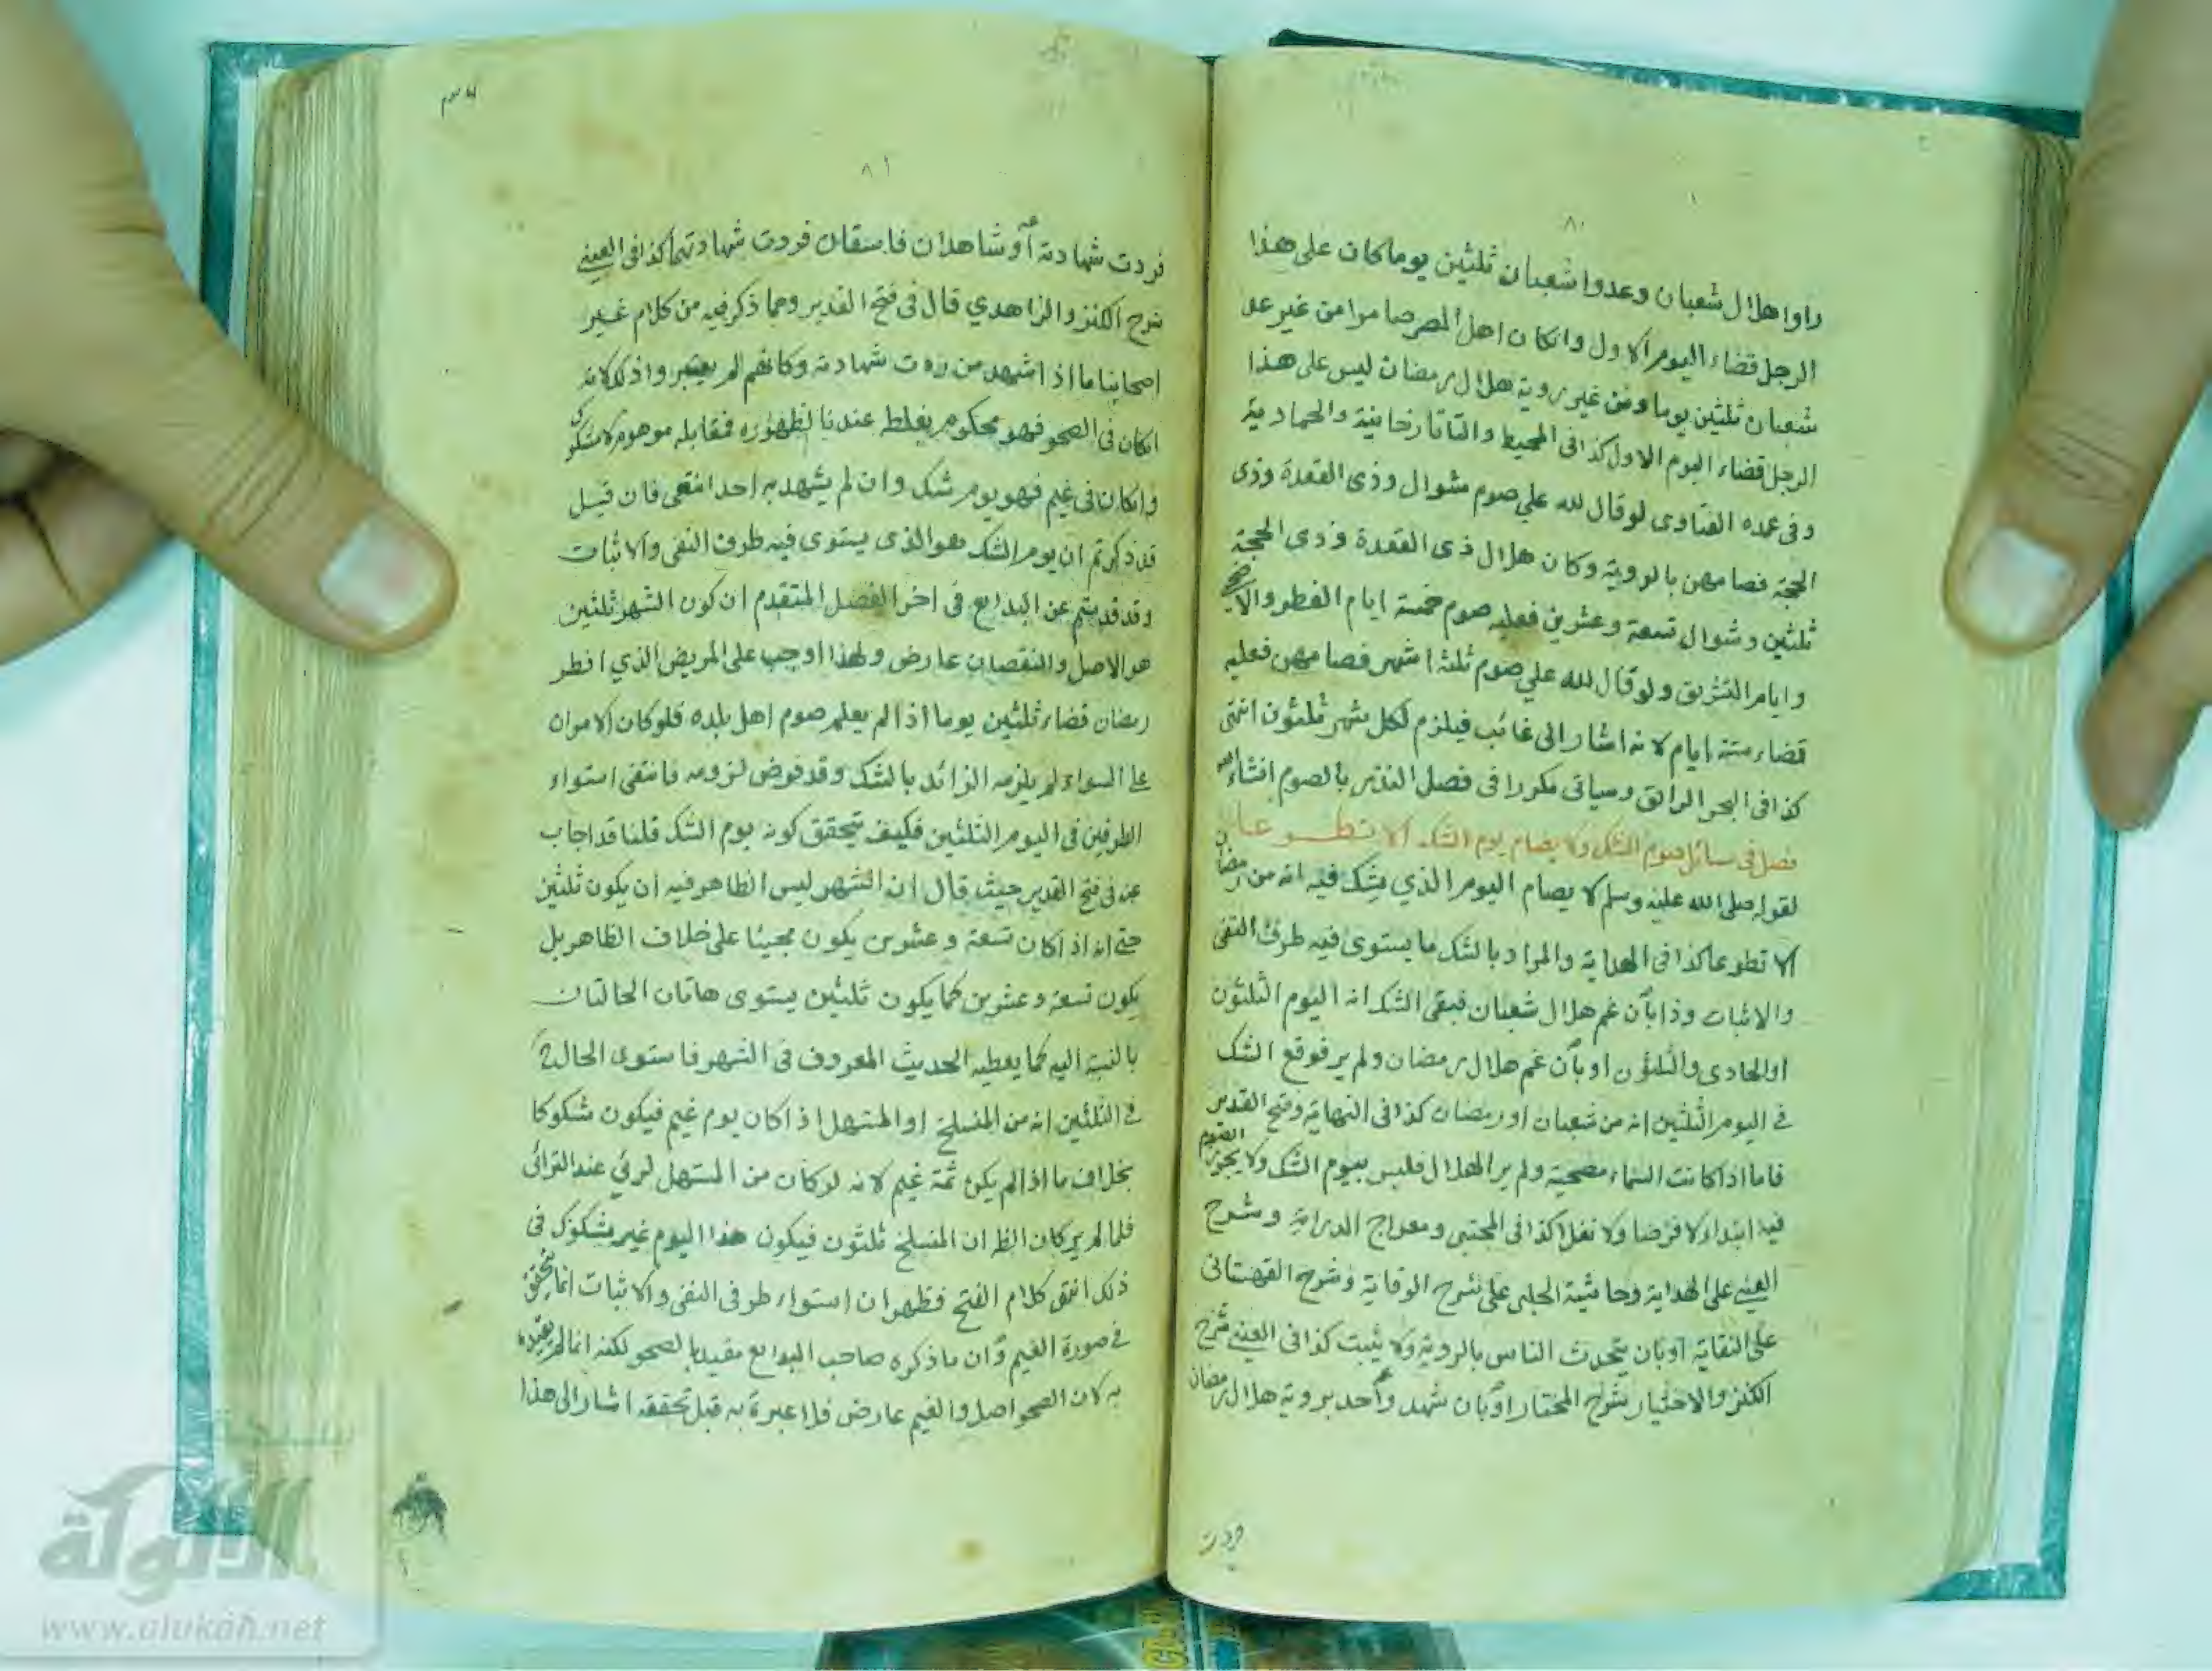 ٨٠
راوا هلال شعبان وعدوا شعبان ثلثين يوما كان على هذا
الرجل قضاء اليوم الاول وانكان اهل المصر صاموا من غير عد
شعبان ثلثين يوما ومن غير روية هلال رمضان ليس على هذا
الرجل قضاء اليوم الاول كذا في المحيط والتاتارخانية والحمادية
وفي عمدة الفتاوى لو قال لله علي صوم شوال وذى القعدة وذى
الحجة فصامهن بالروية وكان هلال ذى القعدة وذى الحجة
ثلثين وشوال تسعة وعشرين فعليه صوم خمسة ايام الفطر والاضحى
وايام التشريق ولو قال لله علي صوم ثلثة اشهر فصامهن فعليه
قضاء ستة ايام لانه اشار الى غائب فيلزم لكل شهر ثلثون انتهى
كذا في البحر الرائق وسياتى مكررا في فصل النذر بالصوم انشاء الله
فصل في مسائل صوم الشك ولا يصام يوم الشك الا تطوعا
لقوله صلى الله عليه وسلم لا يصام اليوم الذي يشك فيه انه من رمضان
الا تطوعا كذا في الهداية والمراد بالشك ما يستوى فيه طرف النفى
والاثبات وذا بان غم هلال شعبان فبقى الشك انه اليوم الثلثون
او الحادى والثلثون او بان غم هلال رمضان ولم ير فوقع الشك
في اليوم الثلثين انه من شعبان او رمضان كذا في النهاية وفتح القدير
فاما اذا كانت السماء مصحية ولم ير الهلال فليس بيوم الشك ولا يجوز الصوم
فيه ابتداء لا فرضا ولا نفلا كذا في المجتبى ومعراج الدراية وشرح
العينى على الهداية وحاشية الحلبى على شرح الوقاية وشرح القهستانى
على النقاية او بان يتحدث الناس بالروية ولا يثبت كذا في العينى شرح
الكنز والاختيار شرح المختار او بان شهد واحد بروية هلال رمضان
فردت
٨١
فردت شهادته او شاهدان فاسقان فردت شهادتهما كذا في العينى
شرح الكنز والزاهدي قال في فتح القدير ومما ذكر فيه من كلام غير
اصحابنا ما اذا شهد من ردت شهادته وكانهم لم يعتبروا ذلك لانه
انكان في الصحو فهو محكوم بغلط عندنا لظهوره فمقابله موهوم لا مشكوك
وانكان في غيم فهو يوم شك وان لم يشهد به احد انتهى فان قيل
قد ذكرتم ان يوم الشك هو الذى يستوى فيه طرف النفى والاثبات
وقد قدمتم عن البدايع في اخر الفصل المتقدم ان كون الشهر ثلثين
هو الاصل والنقصان عارض ولهذا اوجب على المريض الذي افطر
رمضان قضاء ثلثين يوما اذا لم يعلم صوم اهل بلده فلو كان الامران
على السواء لم يلزمه الزائد بالشك وقد فرض لزومه فانتفى استواء
الطرفين في اليوم الثلثين فكيف يتحقق كونه يوم الشك قلنا قد اجاب
عنه في فتح القدير حيث قال ان الشهر ليس الظاهر فيه ان يكون ثلثين
حتى انه اذا كان تسعة وعشرين يكون مجيئا على خلاف الظاهر بل
يكون تسعة وعشرين كما يكون ثلثين يستوى هاتان الحالتان
بالنسبة اليه كما يعطيه الحديث المعروف في الشهر فاستوى الحال ح
في الثلثين انه من المنسلخ او المستهل اذا كان يوم غيم فيكون شكوكا
بخلاف ما اذا لم يكن ثمة غيم لانه لو كان من المستهل لرئي عند الترائى
فلما لم ير كان الظ ان المنسلخ ثلثون فيكون هذا اليوم غير مشكوك في
ذلك انتهى كلام الفتح فظهر ان استواء طرفى النفى والاثبات انما يتحقق
في صورة الغيم وان ما ذكره صاحب البدايع مقيد بالصحو لكنه انما لم يقيده
به لان الصحو اصل والغيم عارض فلا عبرة به قبل تحققه اشار الى هذا
الألوكة
www.alukah.net